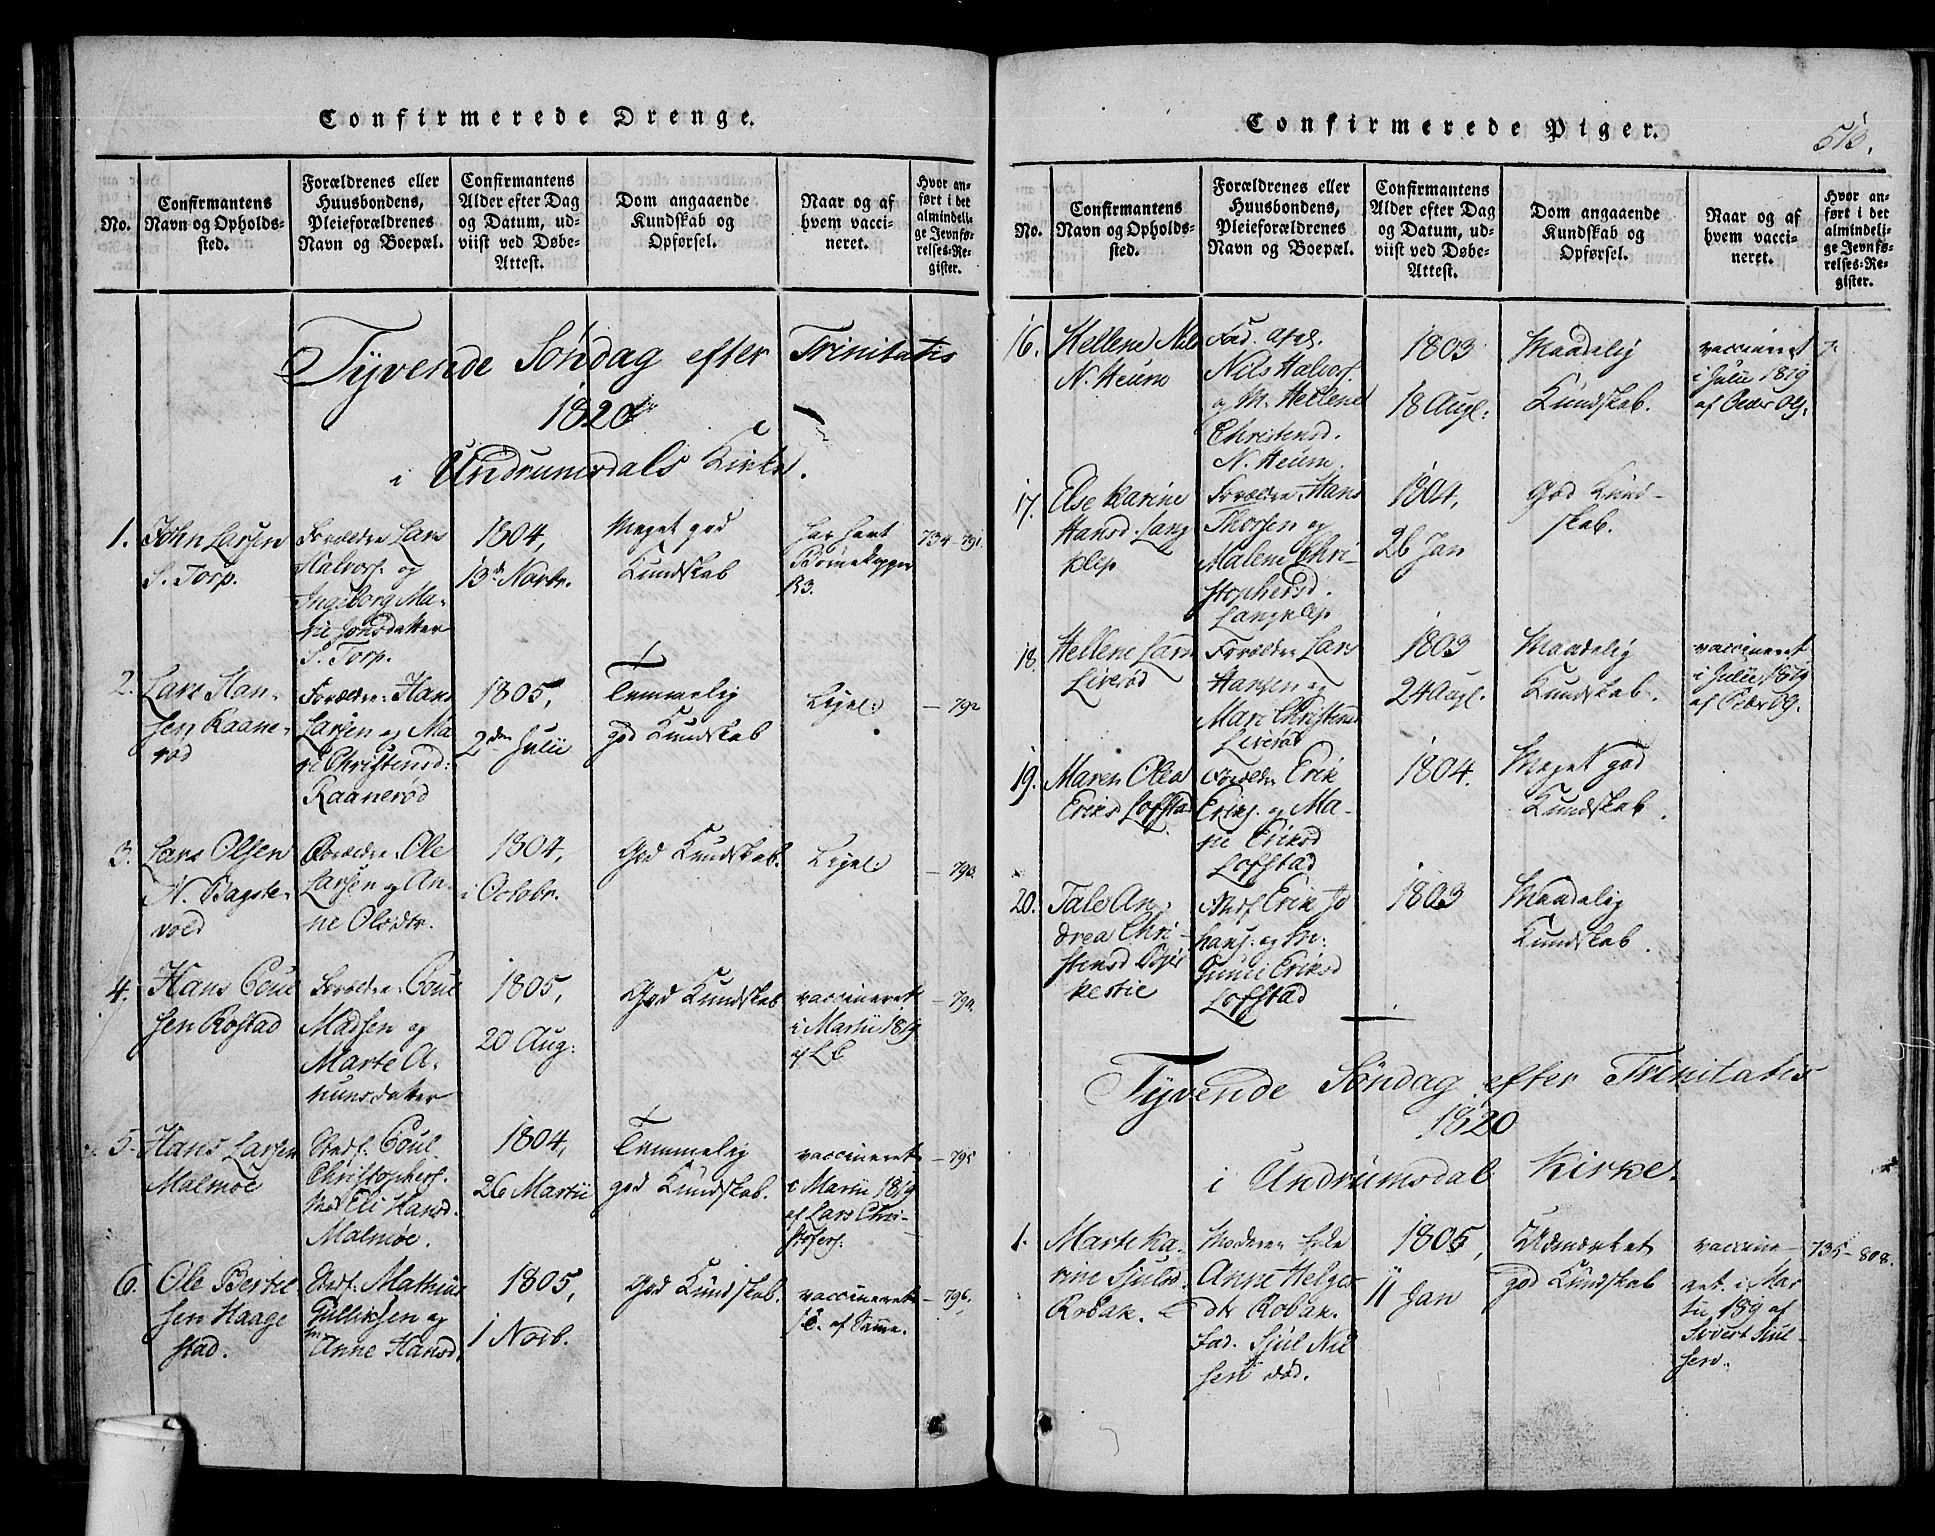 Confirmerede Drenge.
No.
Confirmantens
Navn og Opholds-
sted.
Forældrenes eller
Huusbondens,
Pleieforældrenes
Navn og Boepæl.
Confirmantens
Alder efter Dag
og Datum, ud-
viist ved Døbe-
Attest.
Dom angaaende
Kundskab og
Opførsel.
Naar og af
hvem vacci-
neret.
Hvor an-
ført i det
almindeli-
ge Jevnfø-
relses-Re-
gister.
Tyvende Søndag efter Trinitatis
1820
i Undrumsdals Kirke.
1.
John Larsen
S. Torp.
Forældre Lars
Halvors. og
Ingeborg Ma-
rie Jonsdatter
S. Torp.
1804,
13d Novbr.
Meget god
Kundskab
har havt
Børnekopper
R3.
734-791.
2.
Lars Han-
sen Raane-
rød
Forældre: Hans
Larsen og Ma
ri Christensd:
Raanerød
1805,
2den Julii
Temmelig
god Kundskab
Ligel:
- 792
3.
Lars Olsen
N. Bagste-
vold
Forældre: Ole
Larsen og An-
ne Olsdtr.
1804,
i Octobr.
God Kundskab.
Ligel:
- 793.
4.
Hans Poul
sen Rostad
Forældre: Poul
Madsen og
Marte A-
munsdatter
1805,
20 Aug:
God Kundskab
vaccineret
i Martii 1819
af L C
- 794.
5.
Hans Larsen
Malmøe
Stedf. Poul
Christophers.
Mod Eli Hansd.
Malmøe.
1804,
26 Martii
Temmelig
god Kundskab.
vaccineret
i Martii 1819
af Lars Chri-
stofers:
- 795
6.
Ole Bertel
sen Haage
stad.
Stedf. Mathias
Gulliksen og
Anne Hansd.
1805,
1 Novb.
God Kundskab.
vaccineret
af Samme.
- 796.
Confirmerede Piger.
513.
No.
Confirmantens
Navn og Opholds-
sted.
Forældrenes eller
Huusbondens,
Pleieforældrenes
Navn og Boepæl.
Confirmantens
Alder efter Dag
og Datum, ud-
viist ved Døbe-
Attest.
Dom angaaende
Kundskab og
Opførsel.
Naar og af
hvem vacci-
neret.
Hvor an-
ført i det
almindeli-
ge Jevnfø-
relses-Re-
gister.
16.
Hellene Nils
N. Heum
Fad. afg.
Nils Halvors.
og M. Hellene
Christensd.
N. Heum.
1803
18 Augl:
Maadelig
Kundskab.
vaccineret
i Julii 1819
af Peder Og.
17.
Else Karine
Hansd. Lang
klep
Forældre Hans
Thorsen og
Malene Chri-
stophersd.
Langklep
1804,
26 Jan
God Kund-
skab.
18.
Hellene Lars
Liverød
Forældre Lars
Hansen og
Mari Christensd
Liverød
1803
24 Augl.
Maadelig
Kundskab.
vaccineret
i Julii 1819
af Peder Og.
19.
Maren Olea
Eriks Lofstad
Forældre Erik
Eriks. og Ma-
rie Eriksd
Lofstad
1804.
Meget god
Kundskab.
20.
Tale An-
drea Chri-
stensd Bjer
kestie
Stedf Erik Jo
hans: og
Gunil Eriksd
Lofstad
1803
Maadelig
Kundskab.
Tyvende Søndag efter Trinitatis
1820
i Undrumsdal Kirke.
1.
Marte Ka-
rine Sjulsd.
Robak.
Moderen
Anne Helges
dtr Robak.
Fad. Sjul Nil
sen død.
1805,
11 Jan
Udmærket
god Kundskab
vaccine-
ret i Mar
tii 1819 af
Sivert Sjul-
sen.
735-808.